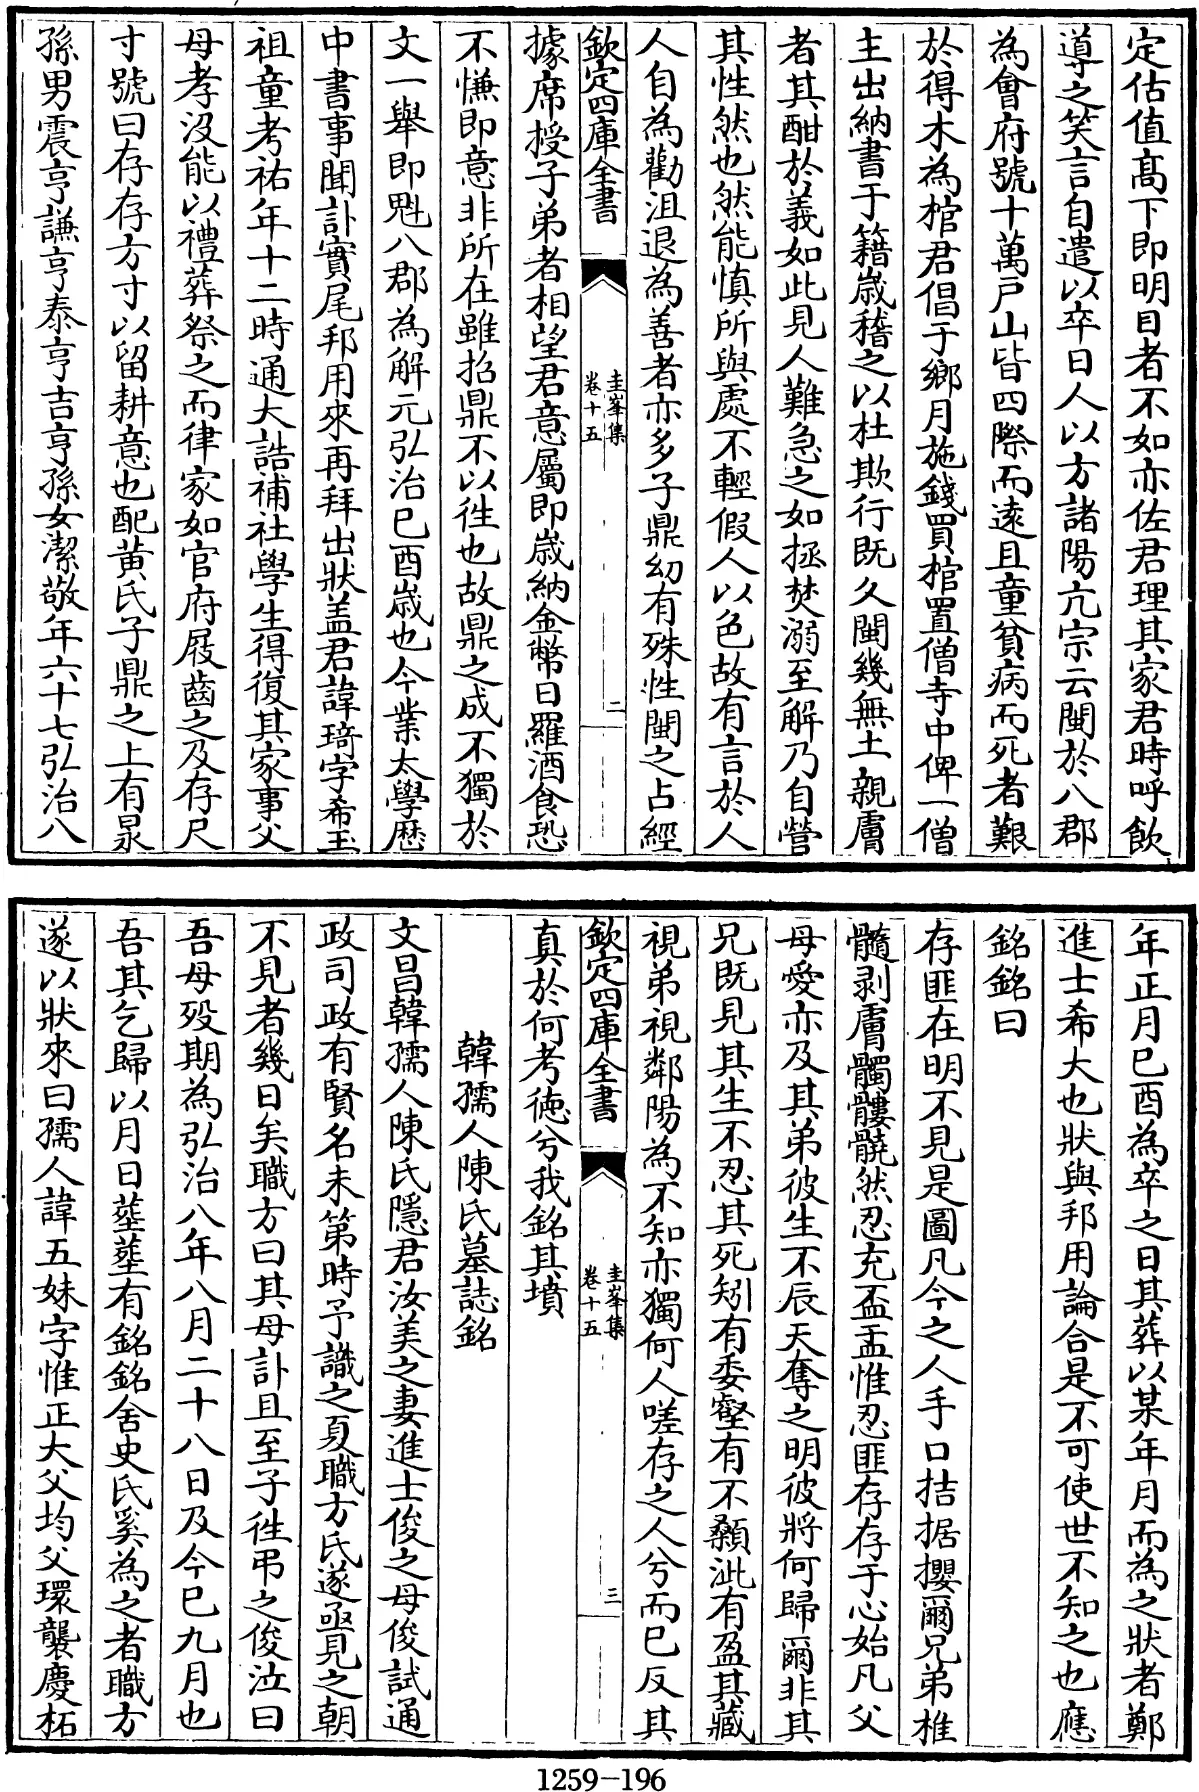 定估值髙下即明目者不如亦佐君理其家君時呼飲
導之笑言自遣以卒日人以方諸陽亢宗云閩於八郡
為會府號十萬户山皆四際而逺且童貧病而死者艱
於得木為棺君倡于鄉月施錢買棺置僧寺中俾一僧
主出納書于籍歲稽之以杜欺行既久閩幾無土親膚
者其酣於義如此見人難急之如拯焚溺至解乃自營
其性然也然能慎所與處不輕假人以色故有言於人
人自為勸沮退為善者亦多子鼎幼有殊性閩之占經
欽定四庫全書
圭峯集
卷十五
二
據席授子弟者相望君意屬即歲納金幣日羅酒食恐
不慊即意非所在雖招鼎不以徃也故鼎之成不獨於
文一舉即魁八郡為解元弘治己酉歲也今業太學歴
中書事聞訃實尾邦用來再拜出狀盖君諱琦字希玉
祖童考祐年十二時通大誥補社學生得復其家事父
母孝沒能以禮葬祭之而律家如官府屐齒之及存尺
寸號曰存存方寸以留耕意也配黄氏子鼎之上有泉
孫男震亨謙亨泰亨吉亨孫女潔敬年六十七弘治八
年正月已酉為卒之日其葬以某年月而為之狀者鄭
進士希大也狀與邦用論合是不可使世不知之也應
銘銘曰
存匪在明不見是圖凡今之人手口拮据攖爾兄弟椎
髓剥膚髑髏髐然忍充盃盂惟忍匪存存于心始凡父
母愛亦及其弟彼生不辰天奪之明彼將何歸爾非其
兄既見其生不忍其死矧有委壑有不顙泚有盈其藏
視弟視鄰陽為不知亦獨何人嗟存之人兮而已反其
欽定四庫全書
圭峯集
卷十五
三
真於何考徳兮我銘其墳
韓孺人陳氏墓誌銘
文昌韓孺人陳氏隱君汝美之妻進士俊之母俊試通
政司政有賢名未第時予識之夏職方氏遂亟見之朝
不見者幾日矣職方曰其母訃且至子徃弔之俊泣曰
吾母殁期為弘治八年八月二十八日及今已九月也
吾其乞歸以月日塟塟有銘銘舍史氏奚為之者職方
遂以狀來曰孺人諱五妹字惟正大父均父環襲慶柘
1259-196